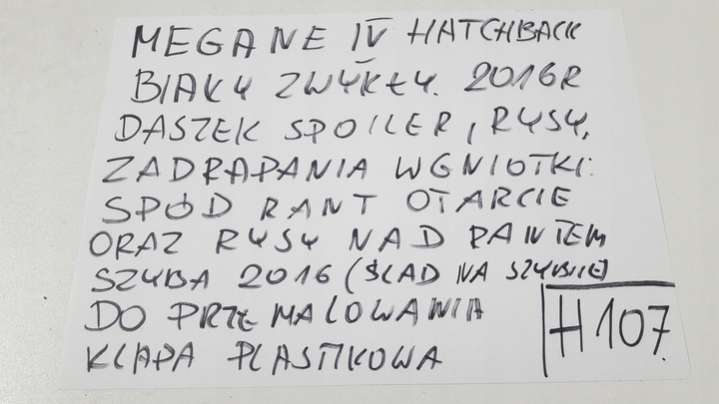 MEGANE IV HATCHBACK
BIAŁY ZWYKŁY. 2016R
DASZEK SPOILER, RYSY,
ZADRAPANIA WGNIOTKI:
SPÓD RANT OTARCIE
ORAZ RYSY NAD RANTEM
SZYBA 2016 (ŚLAD NA SZYBIE)
DO PRZEMALOWANIA
KLAPA PLASTIKOWA
H107.